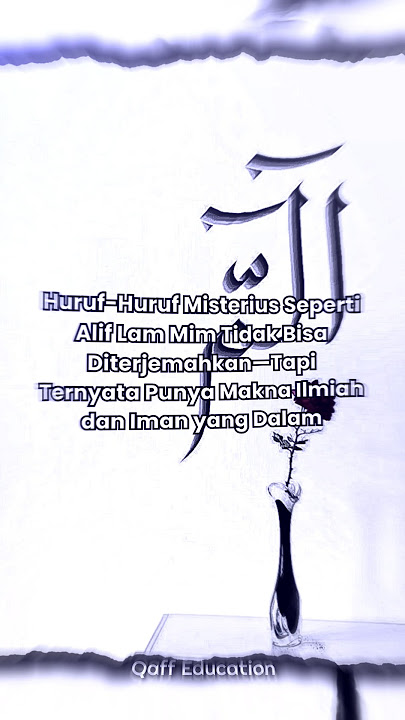 الٓمّٓ
Huruf-Huruf Misterius Seperti
Alif Lam Mim Tidak Bisa
Diterjemahkan—Tapi
Ternyata Punya Makna Ilmiah
dan Iman yang Dalam
Qaff Education